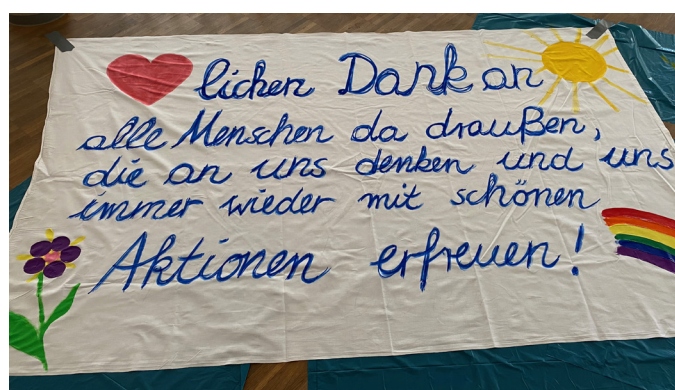 lichen Dank an
alle Menschen da draußen,
die an uns denken und uns
immer wieder mit schönen
Aktionen erfreuen!